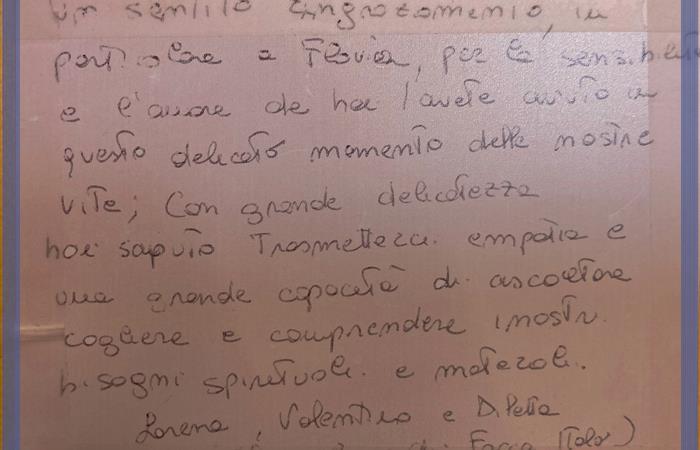 Un sentito ringraziamento, in
particolare a Flavia, per la sensibilità
e l'amore che hai / avete avuto in
questo delicato momento delle nostre
vite; Con grande delicatezza
hai saputo Trasmetterci empatia e
una grande capacità di ascoltare
cogliere e comprendere i nostri
bisogni spirituali e materiali.
Lorena, Valentino e D.letta
di Italo)